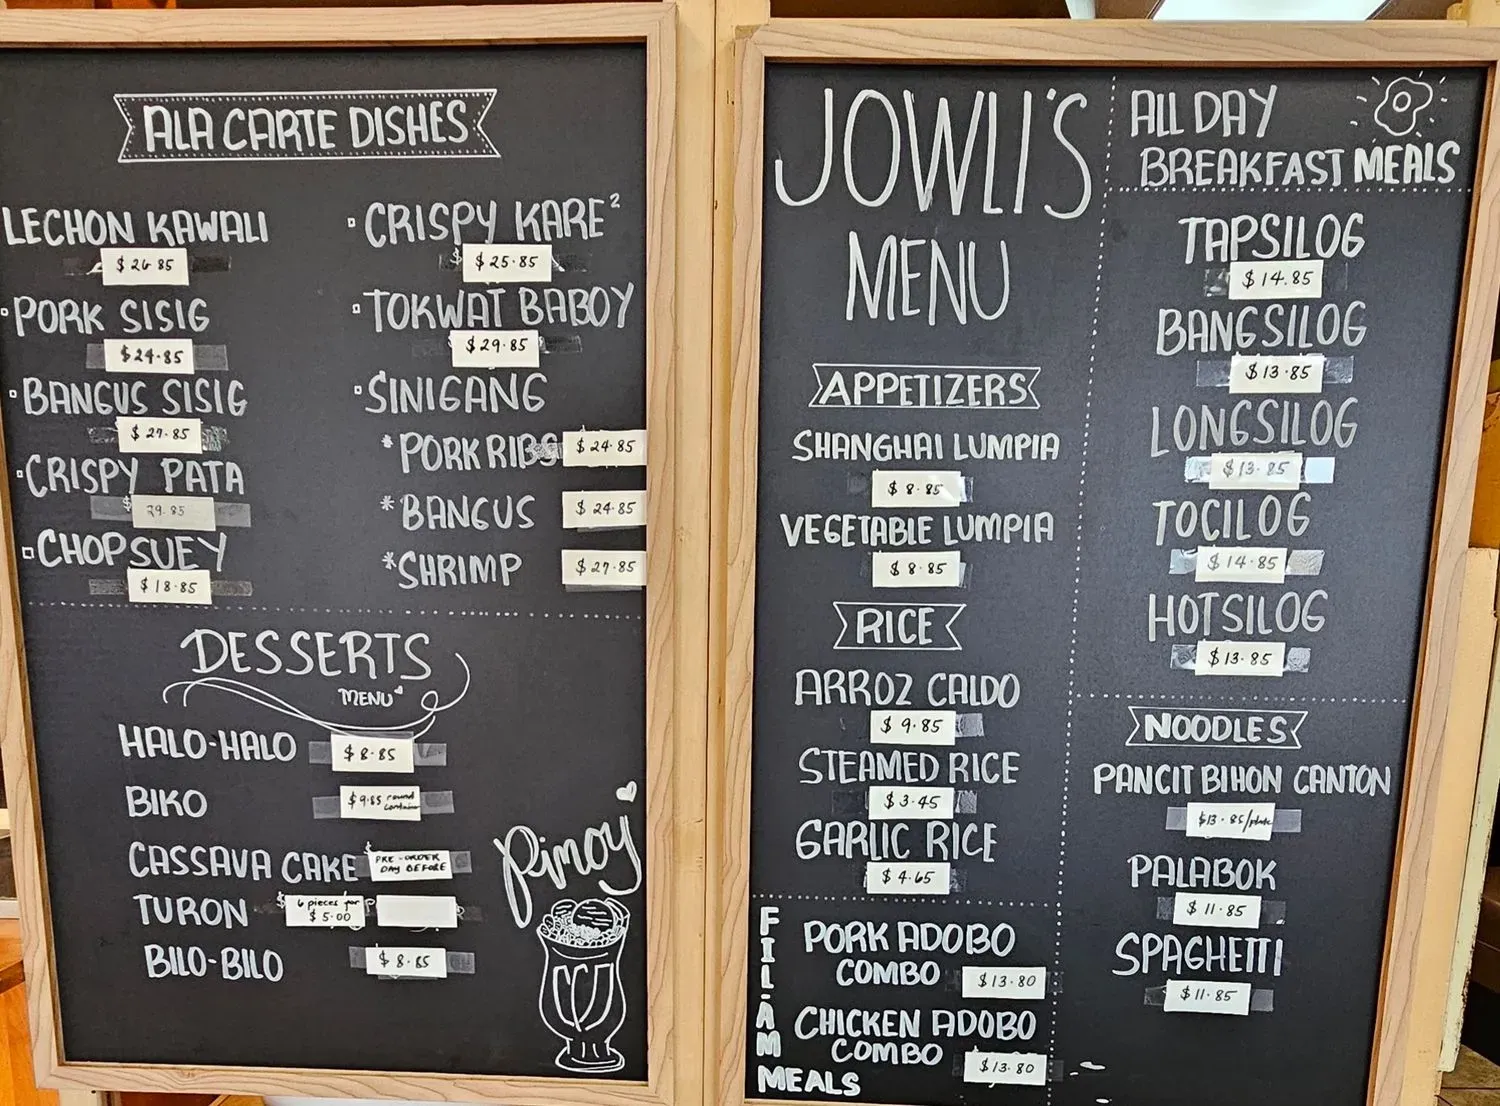 ALA CARTE DISHES
LECHON KAWALI
$26.85
PORK SISIG
$24.85
BANGUS SISIG
$27.85
CRISPY PATA
$
29.85
CHOPSUEY
$18.85
CRISPY KARE²
$25.85
TOKWAT BABOY
$29.85
SINIGANG
*PORK RIBS $24.85
*BANGUS $24.85
*SHRIMP $27.85
DESSERTS
MENU
HALO-HALO $8.85
BIKO $9.85 round container
CASSAVA CAKE $ PRE-ORDER
DAY BEFORE
TURON $ 6 pieces for
$5.00
BILO-BILO $8.85
Pinoy
JOWLI'S
MENU
APPETIZERS
SHANGHAI LUMPIA
$8.85
VEGETABLE LUMPIA
$8.85
RICE
ARROZ CALDO
$9.85
STEAMED RICE
$3.45
GARLIC RICE
$4.65
FIL-AM
MEALS
PORK ADOBO
COMBO $13.80
CHICKEN ADOBO
COMBO $13.80
ALL DAY
BREAKFAST MEALS
TAPSILOG
$14.85
BANGSILOG
$13.85
LONGSILOG
$13.85
TOCILOG
$14.85
HOTSILOG
$13.85
NOODLES
PANCIT BIHON CANTON
$13.85/plate
PALABOK
$11.85
SPAGHETTI
$11.85